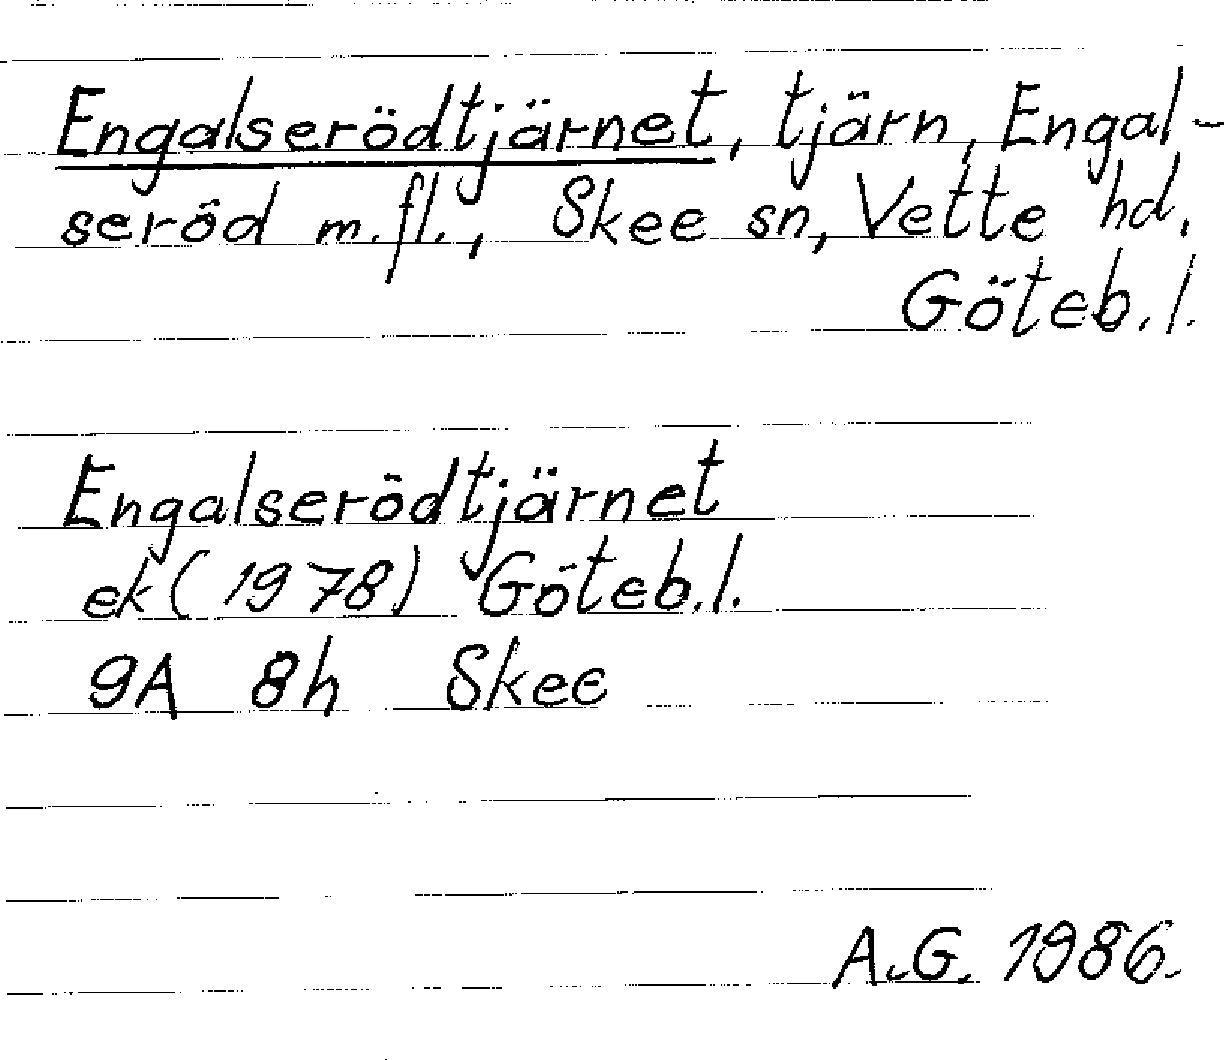 Engalserödtjärnet, tjärn, Engal-
seröd m.fl., Skee sn, Vette hd,
Göteb. l.
Engalserödtjärnet
ek (1978) Göteb. l.
9A 8h Skee
A.G. 1986.